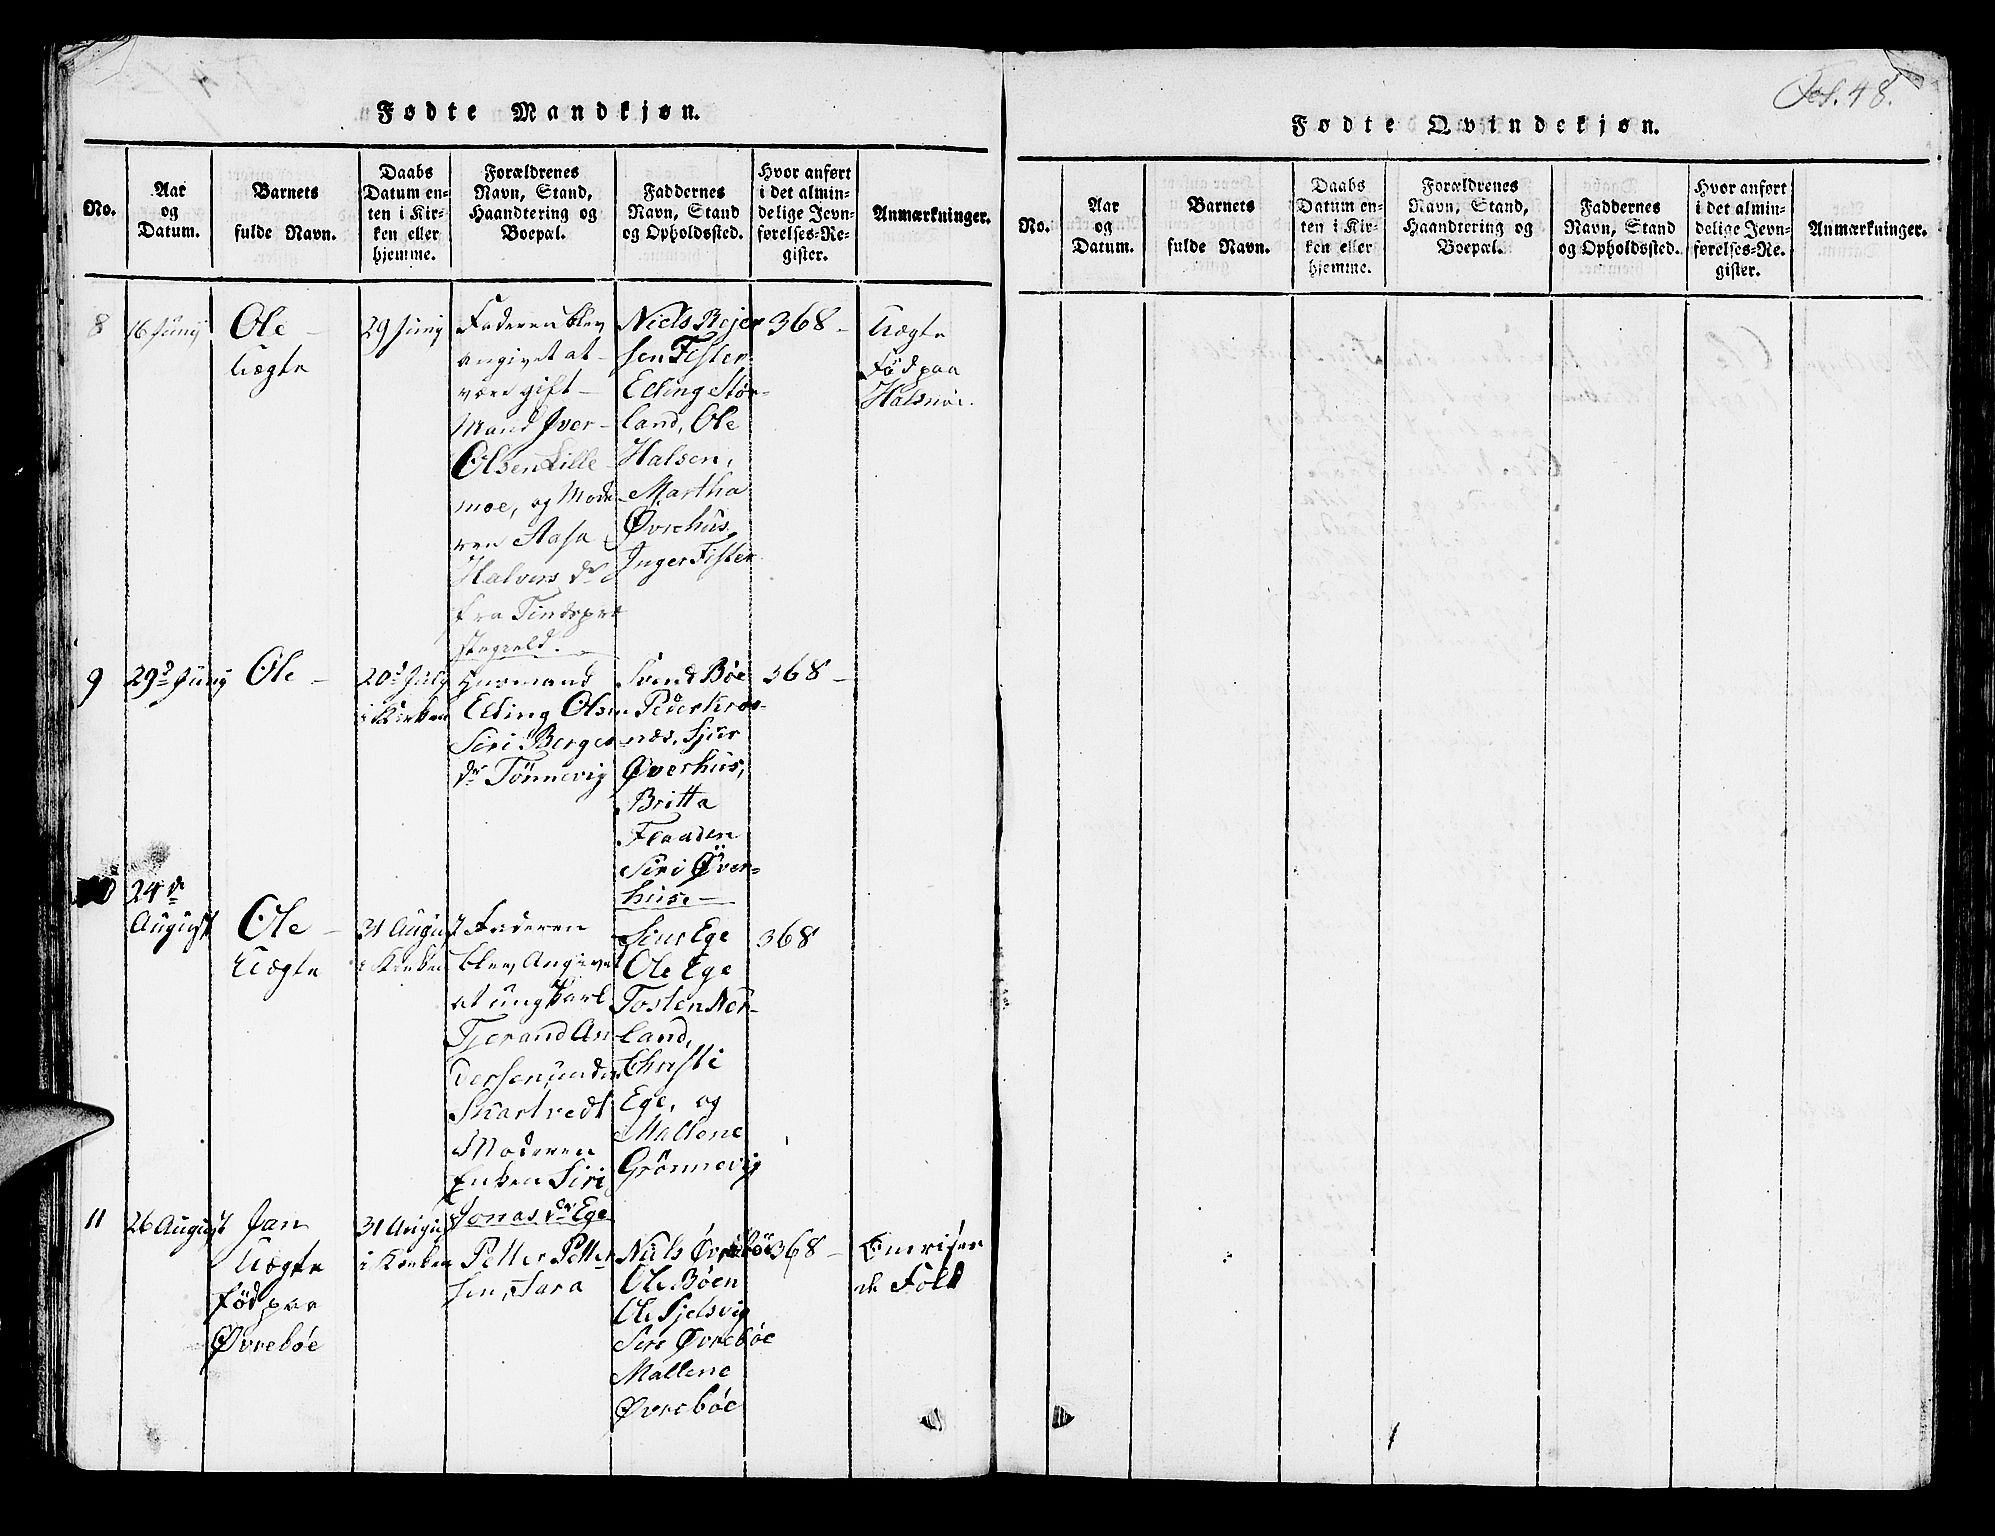 Fødte Mandkjøn.
No.
Aar
og
Datum.
Barnets
fulde Navn.
Daabs
Datum en-
ten i Kir-
ken eller
hjemme.
Forældrenes
Navn, Stand,
Haandtering og
Boepæl.
Faddernes
Navn, Stand
og Opholdssted.
Hvor anført
i det almin-
delige Jevn-
førelses-Re-
gister.
Anmærkninger.
8
16 Junij
Ole –
Uægte
29 Junij
Faderen blev
angivet at
være gift
Mand Iver
Olsen Lille
moe, og Mode
ren Aasa
Halvors dr
fra Tindspre
stegield.
Niels Rejer
sen Fister
Elling Stør-
land, Ole
Halsen,
Martha
Øvrehus
Inger Fister
368 –
Uægte
Fød paa
Halsnøe.
9
29d Junij
Ole –
20d July
i Kirken
Huusmand
Elling Olsen
Siri Berges
dr Tønnevig
Svend Bøe
Peder Kros-
næs, Sjur
Øverhus,
Britta
Flaaden
Siri Øver-
huse
368 –
10
24d
August
Ole –
Uægte
31 August
i Kirken
Faderen
blev Angivet
at ungkarl
Tjerand An
dersen under
Skartvedt
Moderen
Enken Siri
Jonas dr Ege
Siur Ege
Ole Ege
Tosten Ner-
land,
Christi
Ege, og
Mallene
Grønnevig
368
11
26 August
Jan
Uægte
fød paa
Øvrebøe
31 August
i Kirken
Petter Petter
sen, Sara
Niels Øvrebøe
Ole Bøen
Ole Fjelsvig
Siri Øvrebøe
Mallene
Øvrebøe
368 –
Omreisen
de Folk
Fol. 48.
Fødte Qvindekjøn.
No.
Aar
og
Datum.
Barnets
fulde Navn.
Daabs
Datum en-
ten i Kir-
ken eller
hjemme.
Forældrenes
Navn, Stand,
Haandtering og
Boepæl.
Faddernes
Navn, Stand
og Opholdssted.
Hvor anført
i det almin-
delige Jevn-
førelses-Re-
gister.
Anmærkninger.